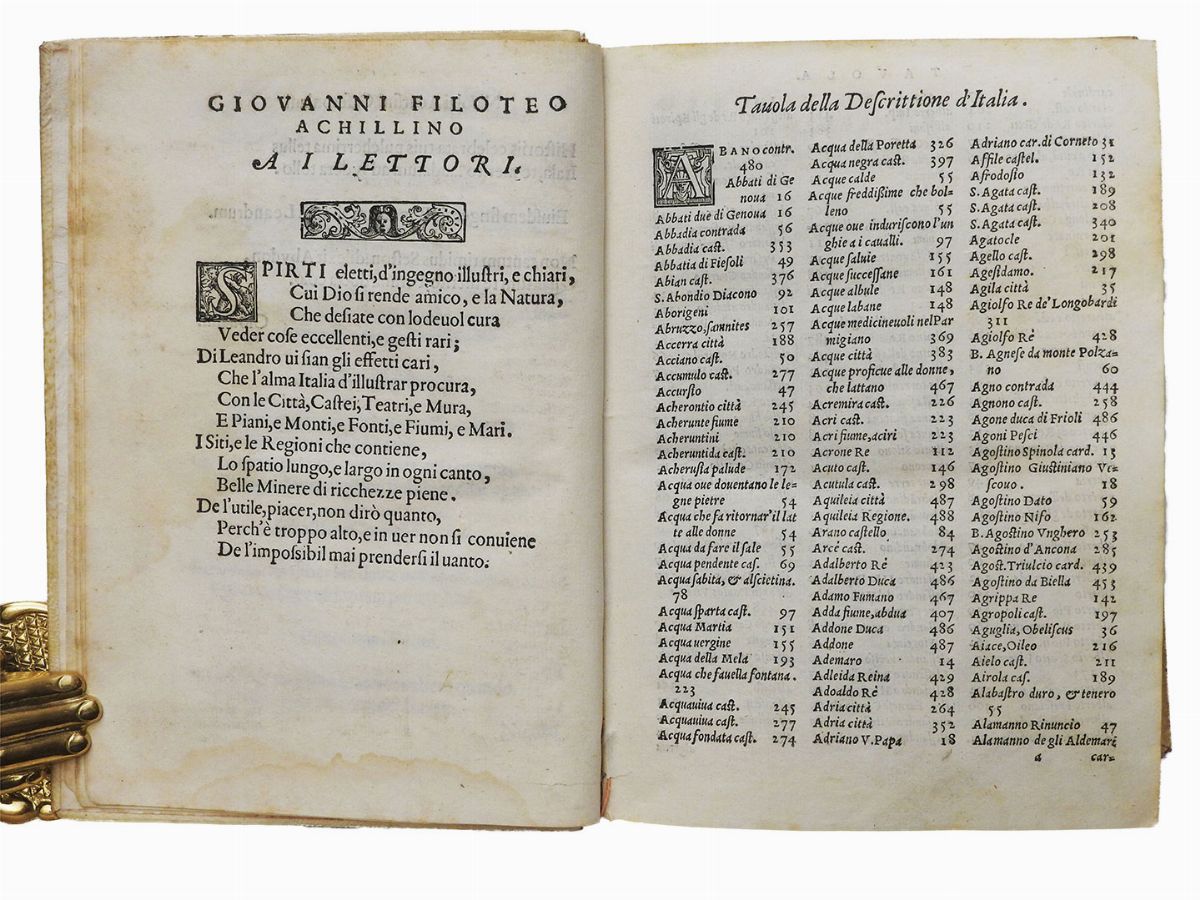 GIOVANNI FILOTEO
ACHILLINO
A I LETTORI.
SPIRTI eletti, d'ingegno illustri, e chiari,
Cui Dio si rende amico, e la Natura,
Che desiate con lodeuol cura
Veder cose eccellenti, e gesti rari;
Di Leandro ui sian gli effetti cari,
Che l'alma Italia d'illustrar procura,
Con le Città, Castei, Teatri, e Mura,
E Piani, e Monti, e Fonti, e Fiumi, e Mari.
I Siti, e le Regioni che contiene,
Lo spatio lungo, e largo in ogni canto,
Belle Minere di ricchezze piene.
De l'utile, piacer, non dirò quanto,
Perch'è troppo alto, e in uer non si conuiene
De l'impossibil mai prendersi il uanto.
Tauola della Descrittione d'Italia.
ABANO contr.
480
Abbati di Ge
noua 16
Abbati due di Genoua 16
Abbadia contrada 56
Abbadia cast. 353
Abbatia di Fiesoli 49
Abian cast. 376
S. Abondio Diacono 92
Aborigeni 101
Abruzzo, samnites 257
Accerra città 188
Acciano cast. 50
Accumulo cast. 277
Accursio 47
Acherontio città 245
Acherunte fiume 210
Acheruntini 210
Acheruntida cast. 210
Acherusia palude 172
Acqua oue douentano le le-
gne pietre 54
Acqua che fa ritornar'il lat
te alle donne 54
Acqua da fare il sale 55
Acqua pendente cas. 69
Acqua sabita, & alscietina.
78
Acqua sparta cast. 97
Acqua Martia 151
Acqua uergine 155
Acqua della Mela 193
Acqua che fauella fontana.
223
Acquauiua cast. 245
Acquauiua cast. 277
Acqua fondata cast. 274
Acqua della Poretta 326
Acqua negra cast. 397
Acque calde 55
Acque freddissime che bol-
leno 55
Acque oue induriscono l'un
ghie a i caualli. 97
Acque saluie 155
Acque successane 161
Acque albule 148
Acque labane 148
Acque medicineuoli nel Par
migiano 369
Acque città 383
Acque proficue alle donne,
che lattano 467
Acremira cast. 226
Acri cast. 223
Acri fiume, aciri 223
Acrone Re 112
Acuto cast. 146
Acutula cast. 298
Aquileia città 487
Aquileia Regione. 488
Arano castello 84
Arcé cast. 274
Adalberto Rè 423
Adalberto Duca 486
Adamo Fumano 467
Adda fiume, abdua 407
Addone Duca 486
Addone 487
Ademaro 14
Adleida Reina 429
Adoaldo Rè 428
Adria città 264
Adria città 352
Adriano V. Papa 18
Adriano car. di Corneto 31
Affile castel. 152
Afrodosio 132
S. Agata cast. 189
S. Agata cast. 208
S. Agata cast. 340
Agatocle 201
Agello cast. 298
Agesidamo. 217
Agila città 35
Agiolfo Re de' Longobardi
311
Agiolfo Rè 428
B. Agnese da monte Polza-
no 60
Agno contrada 444
Agnono cast. 258
Agone duca di Frioli 486
Agoni Pesci 446
Agostino Spinola card. 13
Agostino Giustiniano Ve-
scouo. 18
Agostino Dato 59
Agostino Nifo 162
B. Agostino Vnghero 253
Agostino d'Ancona 285
Agost. Triulcio card. 439
Agostino da Biella 453
Agrippa Re 142
Agropoli cast. 197
Aguglia, Obeliscus 36
Aiace, Oileo 216
Aielo cast. 211
Airola cas. 189
Alabastro duro, & tenero
55
Alamanno Rinuccio 47
Alamanno de gli Aldemari
a car-